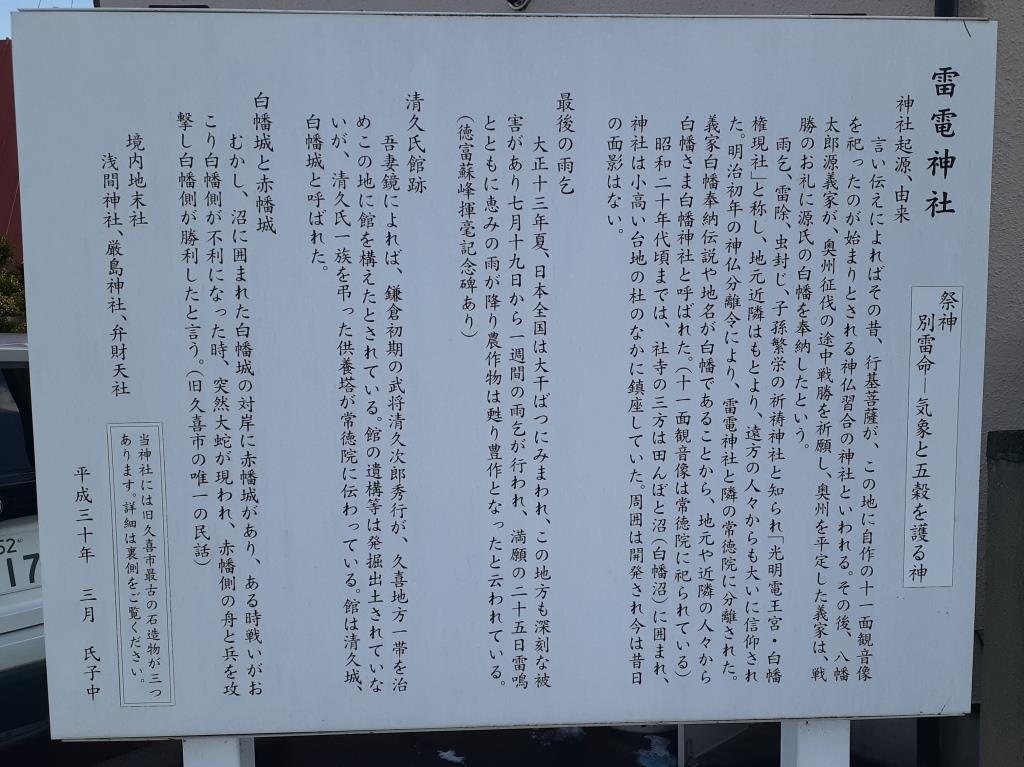 雷電神社
祭神
別雷命―気象と五穀を護る神
神社起源、由来
言い伝えによればその昔、行基菩薩が、この地に自作の十一面観音像
を祀ったのが始まりとされる神仏習合の神社といわれる。その後、八幡
太郎源義家が、奥州征伐の途中戦勝を祈願し、奥州を平定した義家は、戦
勝のお礼に源氏の白幡を奉納したという。
雨乞、雷除、虫封じ、子孫繁栄の祈祷神社と知られ「光明電王宮・白幡
権現社」と称し、地元近隣はもとより、遠方の人々からも大いに信仰され
た。明治初年の神仏分離令により、雷電神社と隣の常徳院に分離された。
義家白幡奉納伝説や地名が白幡であることから、地元や近隣の人々から
白幡さま白幡神社と呼ばれた。（十一面観音像は常徳院に祀られている）
昭和二十年代頃までは、社寺の三方は田んぼと沼（白幡沼）に囲まれ、
神社は小高い台地の杜のなかに鎮座していた。周囲は開発され今は昔日
の面影はない。
最後の雨乞
大正十三年夏、日本全国は大干ばつにみまわれ、この地方も深刻な被
害があり七月十九日から一週間の雨乞が行われ、満願の二十五日雷鳴
とともに恵みの雨が降り農作物は甦り豊作となったと云われている。
（徳富蘇峰揮毫記念碑あり）
清久氏館跡
吾妻鏡によれば、鎌倉初期の武将清久次郎秀行が、久喜地方一帯を治
めこの地に館を構えたとされている。館の遺構等は発掘出土されていな
いが、清久氏一族を弔った供養塔が常徳院に伝わっている。館は清久城、
白幡城と呼ばれた。
白幡城と赤幡城
むかし、沼に囲まれた白幡城の対岸に赤幡城があり、ある時戦いがお
こり白幡側が不利になった時、突然大蛇が現われ、赤幡側の舟と兵を攻
撃し白幡側が勝利したと言う。（旧久喜市の唯一の民話）
境内地末社
浅間神社、厳島神社、弁財天社
当神社には旧久喜市最古の石造物が三つ
あります。詳細は裏側をご覧ください。
平成三十年 三月 氏子中
52
17